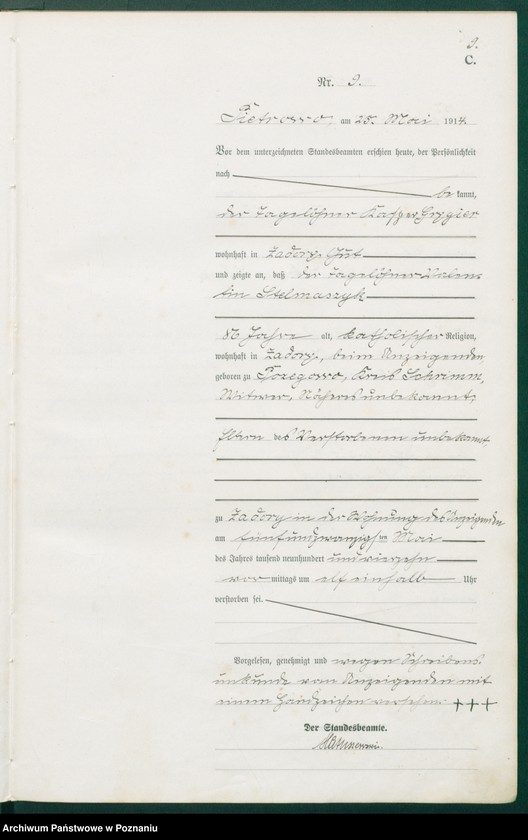 9.
C.
Nr. 9.
Pietrowo, am 25. Mai 1914.
Vor dem unterzeichneten Standesbeamten erschien heute, der Persönlichkeit
nach
be kannt,
der Tagelöhner Kasper
wohnhaft in Zadory, Gut
und zeigte an, daß der Tagelöhner Valen-
tin Stelmaszyk
Jahre alt, katholischer Religion,
wohnhaft in Zadory, beim Anzeigenden,
geboren zu Kreis Schrimm,
Witwer, Näheres unbekannt,
Eltern des Verstorbenen unbekannt,
zu Zadory in der Wohnung des Anzeigenden
am fünfundzwanzigsten Mai
des Jahres tausend neunhundert und vierzehn
vor mittags um elf einhalb Uhr
verstorben sei.
Vorgelesen, genehmigt und wegen Schreibens-
unkunde vom Anzeigenden mit
einem Handzeichen versehen +++
Der Standesbeamte.
Archiwum Państwowe w Poznaniu